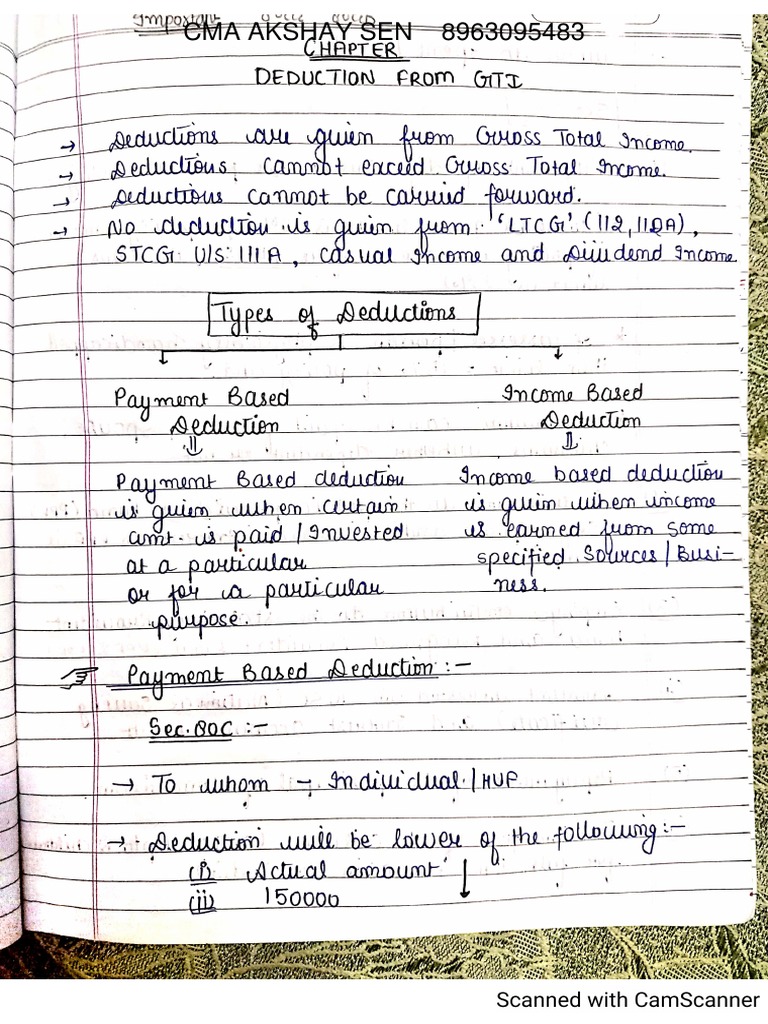 Important
CMA AKSHAY SEN 8963095483
CHAPTER
DEDUCTION FROM GTI
→ Deductions are given from Gross Total Income.
→ Deductions cannot exceed Gross Total Income.
→ Deductions cannot be carried forward.
→ No deduction is given from 'LTCG' (112, 112A),
STCG U/S 111A, casual Income and Dividend Income
Types of Deductions
Payment Based
Deduction
⇓
Payment Based deduction
is given when certain
amt. is paid / Invested
at a particular
or for a particular
purpose.
Income Based
Deduction
⇓
Income based deduction
is given when income
is earned from some
specified Sources / Busi-
ness.
Payment Based Deduction :-
Sec. 80C :-
→ To whom - Individual / HUF
→ Deduction will be lower of the following :-
(i) Actual amount
(ii) 150000
Scanned with CamScanner